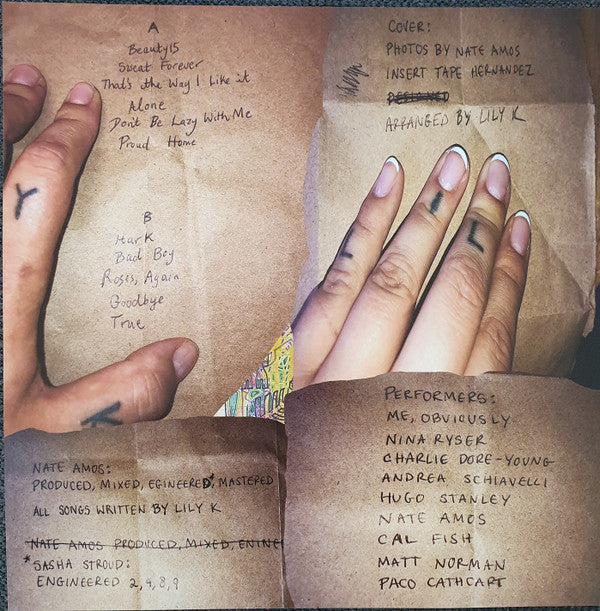 A
Beauty15
Sweat Forever
That's the Way I Like it
Alone
Don't Be Lazy With Me
Proud Home
B
Hark
Bad Boy
Roses, Again
Goodbye
True
COVER:
PHOTOS BY NATE AMOS
INSERT TAPE HERNANDEZ
DESIGNED
ARRANGED BY LILY K
Y
L
K
NATE AMOS:
PRODUCED, MIXED, EGINEERED*, MASTERED
ALL SONGS WRITTEN BY LILY K
NATE AMOS PRODUCED, MIXED, ENINE
*SASHA STROUD:
ENGINEERED 2,4,8,9
PERFORMERS:
ME, OBVIOUSLY
NINA RYSER
CHARLIE DORE-YOUNG
ANDREA SCHIAVELLI
HUGO STANLEY
NATE AMOS
CAL FISH
MATT NORMAN
PACO CATHCART